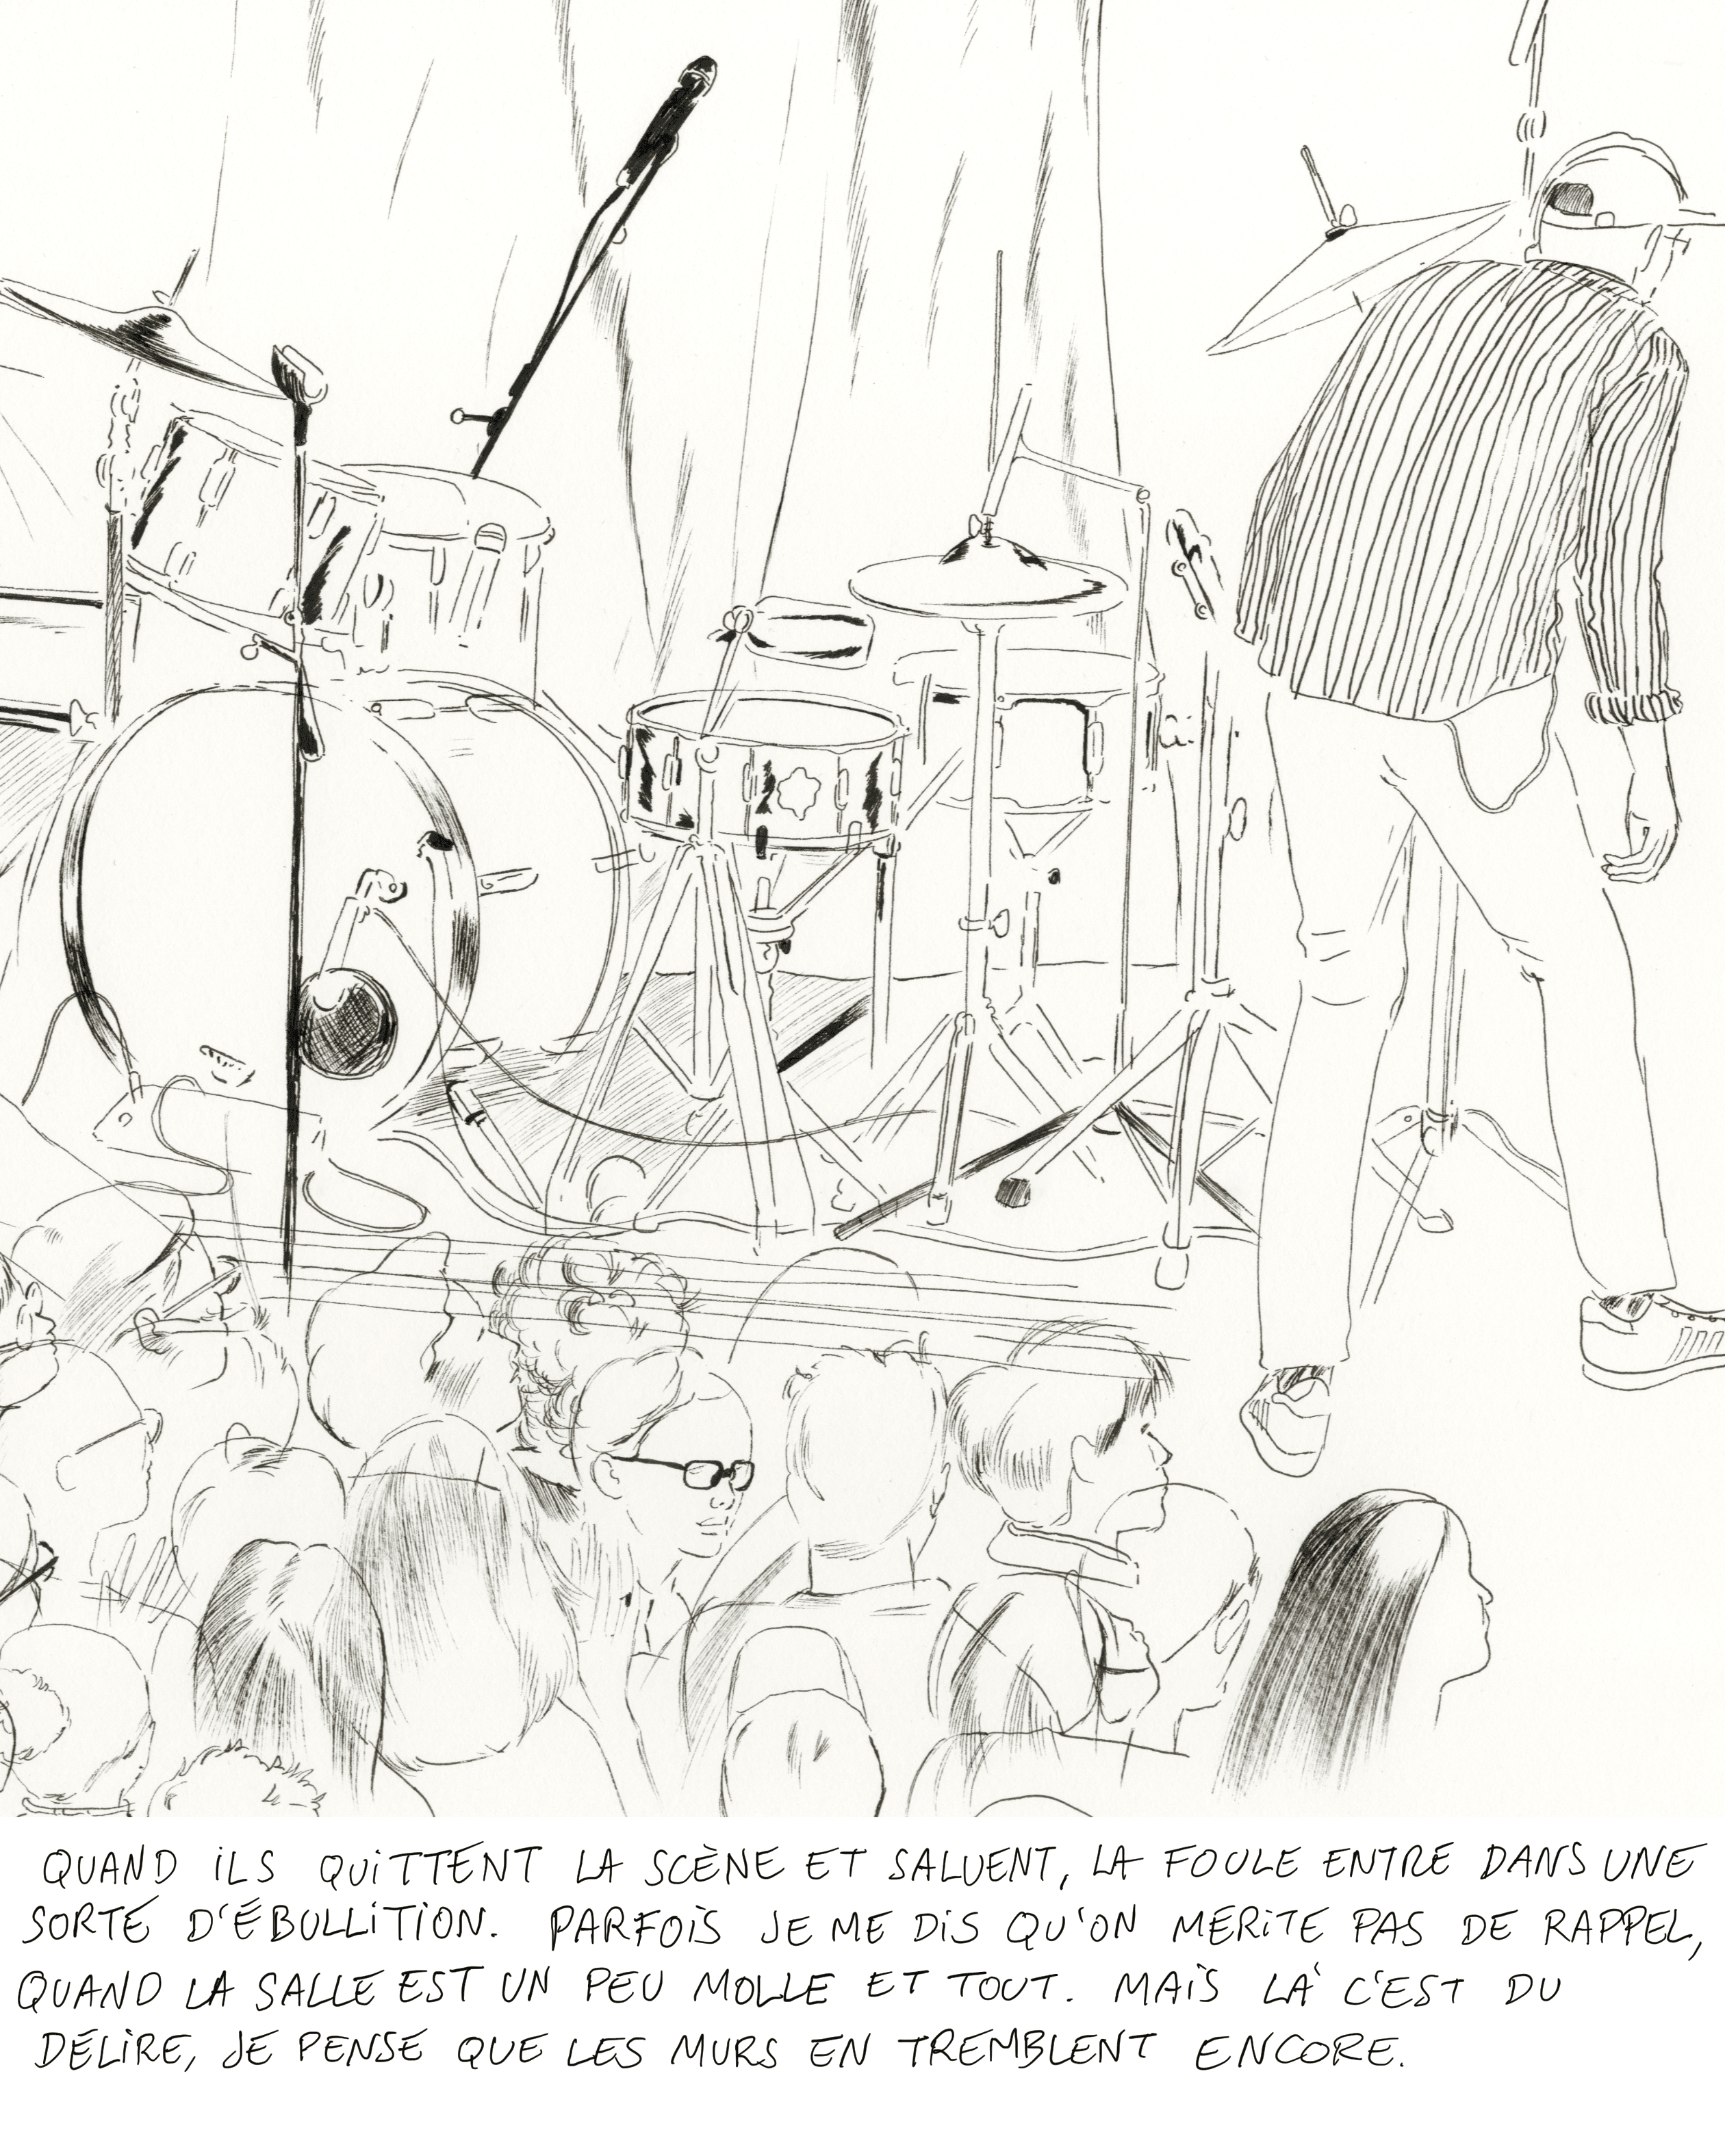 QUAND ILS QUITTENT LA SCÈNE ET SALUENT, LA FOULE ENTRE DANS UNE
SORTE D'ÉBULLITION. PARFOIS JE ME DIS QU'ON MERITE PAS DE RAPPEL,
QUAND LA SALLE EST UN PEU MOLLE ET TOUT. MAIS LÀ C'EST DU
DÉLIRE, JE PENSE QUE LES MURS EN TREMBLENT ENCORE.